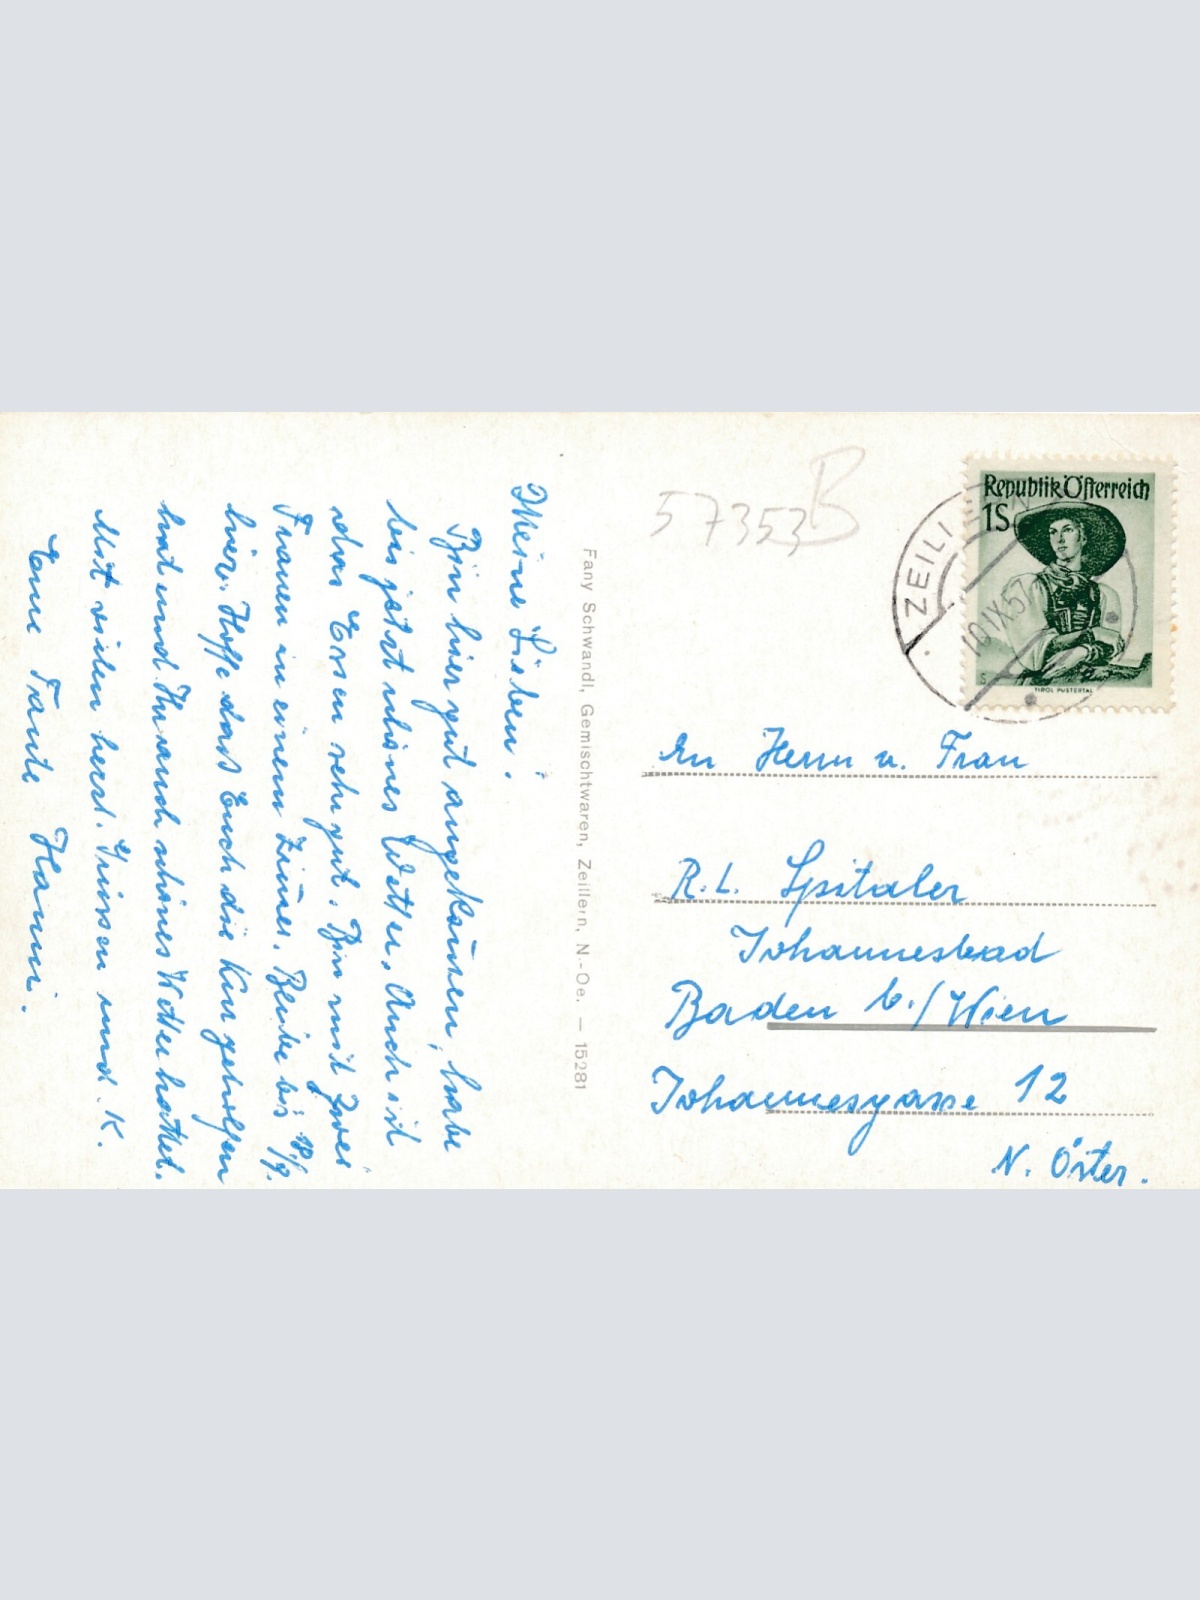 Meine Lieben!
Bin hier gut angekom̄en, habe
bis jetzt schönes Wetter. Auch ist
das Essen sehr gut. Bin mit zwei
Frauen in einem Zim̄er. Bleibe bis 18./9.
hier. Hoffe dass Euch die Kur geholfen
hat und Ihr auch schönes Wetter hattet.
Mit vielen herzl. Grüssen und K.
Eure Tante Hanni.
Fany Schwandl, Gemischtwaren, Zeillern, N.-Oe. — 15281
57353B
Republik Österreich
1S
TIROL PUSTERTAL
ZEILLERN
10.IX.57
An Herrn u. Frau
R. L. Spitaler
Johannesbad
Baden b./Wien
Johannesgasse 12
N. Öster.